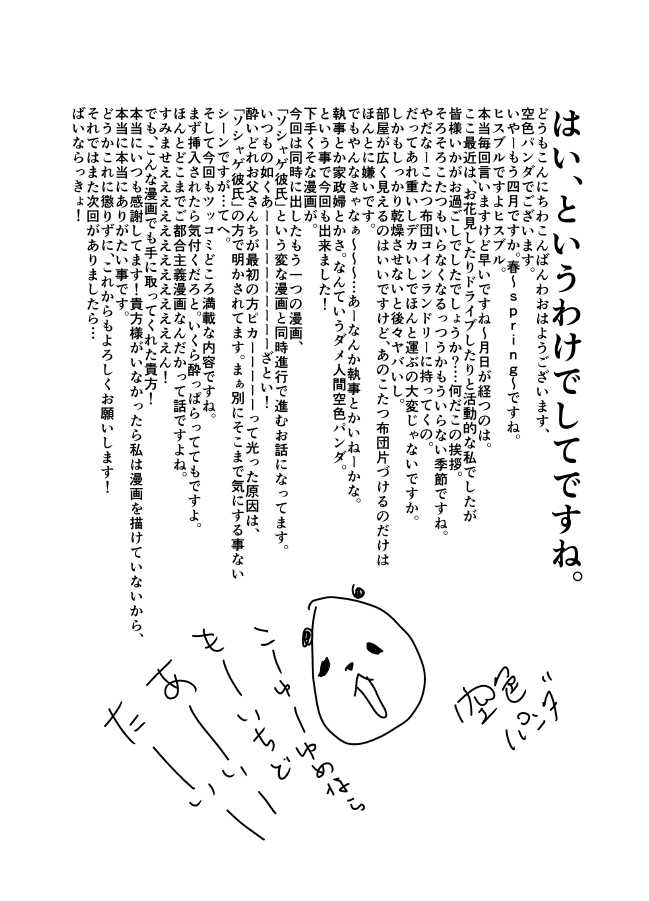 はい、というわけでしてですね。
どうもこんにちわこんばんわおはようございます、
空色パンダでございます。
いやーもう四月ですか。春～ｓｐｒｉｎｇ～ですね。
ヒスブルですよヒスブル。
本当毎回言いますけど早いですね～月日が経つのは。
ここ最近は、お花見したりドライブしたりと活動的な私でしたが
皆様いかがお過ごしでしたでしょうか？…何だこの挨拶。
そろそろこたつもいらなくなるっつうかもういらない季節ですね。
やだなーこたつ布団コインランドリーに持ってくの。
だってあれ重いしデカいしでほんと運ぶの大変じゃないですか。
しかもしっかり乾燥させないと後々ヤバいし。
部屋が広く見えるのはいいですけど、あのこたつ布団片づけるのだけは
ほんとに嫌いです。
でもやんなきゃなぁ～～～…あーなんか執事とかいねーかな。
執事とか家政婦とかさ。なんていうダメ人間空色パンダ。
という事で今回も出来ました！
下手くそな漫画が。
今回は同時に出したもう一つの漫画、
「ソシャゲ彼氏」という変な漫画と同時進行で進むお話になってます。
いつもの如くあーーーーーーーーーざとい！
酔いどれお父さんちが最初の方ピカーーーーーって光った原因は、
「ソシャゲ彼氏」の方で明かされてます。まぁ別にそこまで気にする事ない
シーンですが…てへ。
そして今回もツッコミどころ満載な内容ですね。
まず挿入されたら気付くだろと。いくら酔っぱらっててもですよ。
ほんとどこまでご都合主義漫画なんだかって話ですよね。
すみませぇえええええええええええん！
でも、こんな漫画でも手に取ってくれた貴方！
本当にいつも感謝してます！貴方様がいなかったら私は漫画を描けていないから、
本当に本当にありがたい事です。
どうかこれに懲りずに、これからもよろしくお願いします！
それではまた次回がありましたら…
ばいならっきょ！
空色
パンダ
こーゆーゆめなら
もーいちど
あーいーいー
たーーい